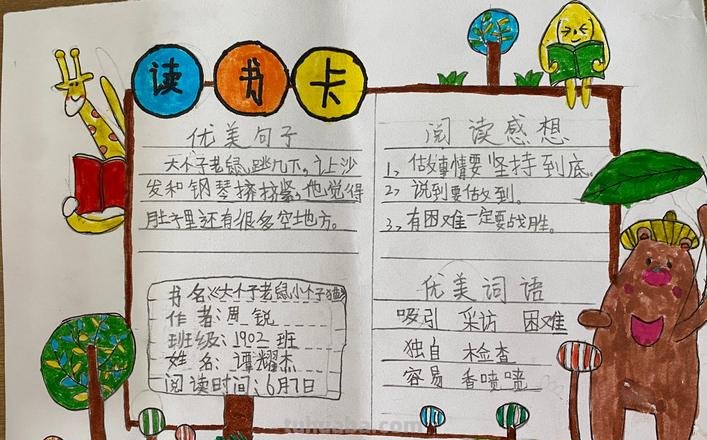 读书卡
优美句子
大个子老鼠跳几下,让沙
发和钢琴挤挤紧,他觉得
肚子里还有很多空地方。
书名:《大个子老鼠小个子猫》
作者:周锐
班级:1902班
姓名:谭耀杰
阅读时间:6月7日
阅读感想
1、做事情要坚持到底。
2、说到要做到。
3、有困难一定要战胜。
优美词语
吸引 采访 困难
独自 检查
容易 香喷喷
tuhuaba.com